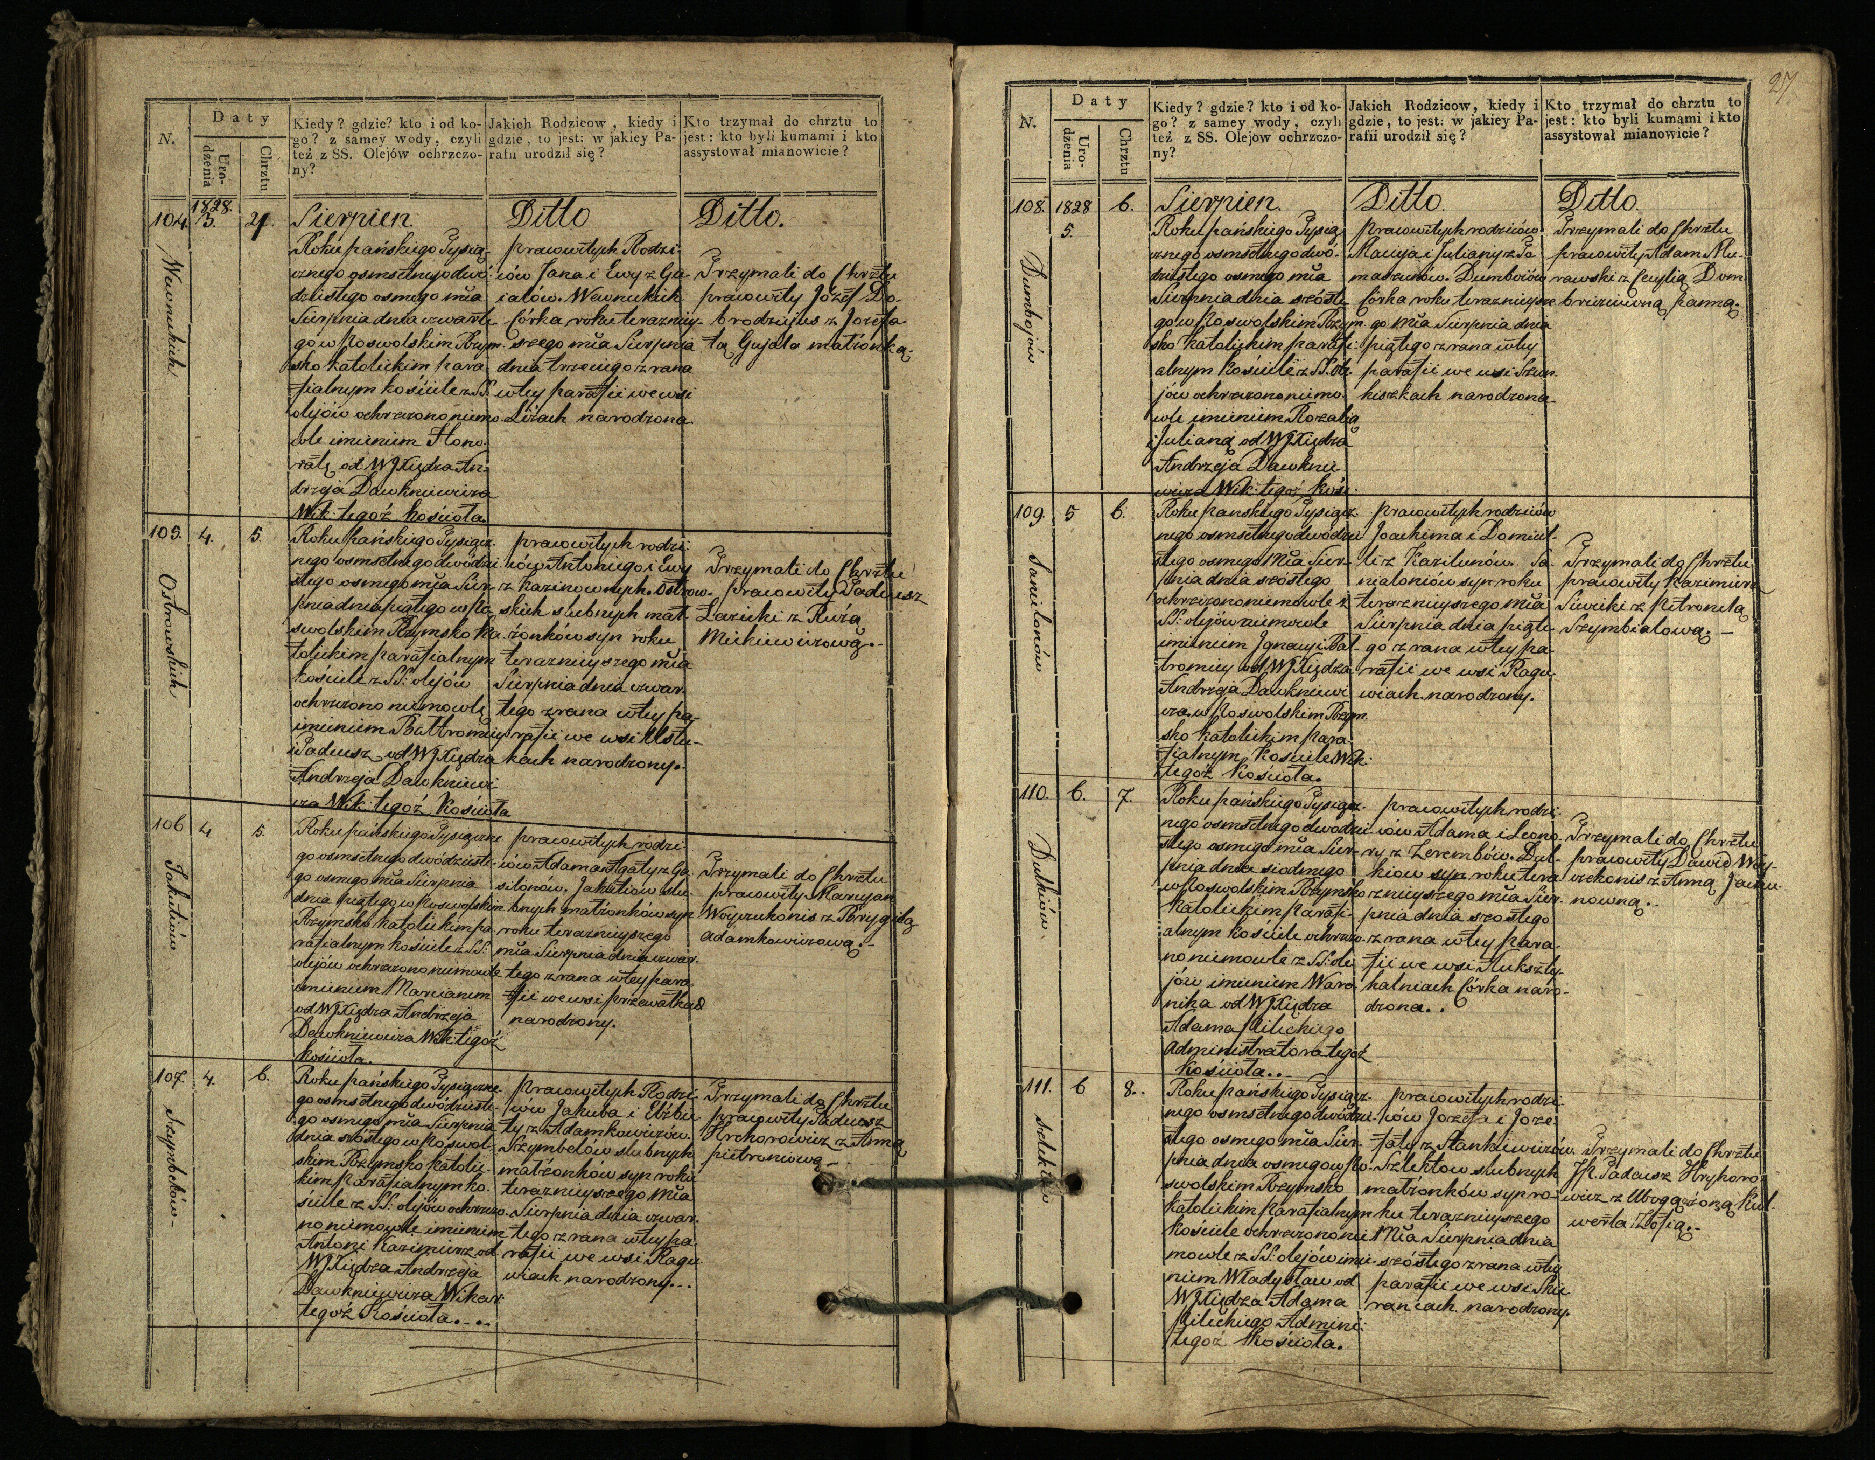 N.
Daty
Uro-
dzenia
Chrztu
Kiedy? gdzie? kto i od ko-
go? z samey wody, czyli
też z SS. Olejów ochrzczo-
ny?
Jakich Rodzicow, kiedy i
gdzie, to jest: w jakiey Pa-
rafii urodził się?
Kto trzymał do chrztu to
jest: kto byli kumami i kto
assystował mianowicie?
104.
1828.
3.
4.
Sierpien
Roku pańskiego Tysiąc
cznego osmsetnego dwó-
dziestego osmego mła
Sierpnia dnia czwarte
go w Poswolskim Rzym-
sko katolickim para
fialnym kościele z SS.
olejów ochrzczono niemo
wle imieniem Hono-
ratę od WJXiędza An-
drzeja Dawkniewicza
Wik: tegoż kościoła.
Ditto
pracowitych Rodzi-
ców Jana i Ewy z Ga-
Córka roku terazniey-
szego mła Sierpnia
dnia trzeciego zrana
wtey parafii we wsi
narodzona.
Ditto.
Trzymali do Chrztu
pracowity Józef Do-
brodziejus z Jozefa
tą Gujdla matronką.
105.
4.
5.
Ostrowskich
Roku pańskiego Tysiącz-
nego osmsetnego dwódzie
stego osmego mła Sier-
pnia dnia piątego w Po
swolskim Rzymsko ka
tolickim parafialnym
kościele z SS: olejów
ochrzczono niemowlę
imieniem Bartłomiey
i Tadeusz od WJXiędza
Andrzeja Dawkniewi
cza Wik: tegoż kościoła
pracowitych rodzi-
ców Antoniego i Ewy
Ostrow-
skich slubnych mał-
żonków syn roku
terazniejszego mła
Sierpnia dnia czwar-
tego zrana wtey pa-
rafii we wsi Ustu-
kach narodzony.
Trzymali do Chrztu
pracowity Tadeusz
Łazicki z Rużą
Mickiewiczową.-
106
4
5.
Jakutiów
Roku pańskiego Tysiączne
go osmsetnego dwódzieste
go osmego mła Sierpnia
dnia piątego w Poswolskim
Rzymsko katolickim pa
rafialnym kościele z SS:
olejów ochrzczono niemowle
imieniem Marcianem
od WJXiędza Andrzeja
Dawkniewicza Wik: tegoż
kościoła.
pracowitych rodzi-
ców Adama Agaty z Ga
silonów. Jakutiow slu-
bnych matronków syn
roku terazniejszego
mła Sierpnia dnia czwar-
tego zrana wtey para
fii we wsi
narodzony.
Trzymali do Chrztu
pracowity Marcyan
Woyczukonis z Brygidą
Adamkowiczową.-
107.
4.
6.
Szymbelów
Roku pańskiego Tysiączne
go osmsetnego dwódzieste-
go osmego mła Sierpnia
dnia szóstego w Poswol-
skim Rzymsko katolic-
kim parafialnym ko-
ściele z SS: olejów ochrzczo-
no niemowle imieniem
Antoni Kazimierz od
WJXiędza Andrzeja
Dawkniewicza Wikar:
tegoż Kościoła....
pracowitych Rodzi-
ców Jakuba i Elżbie
ty z Adamkowiczów.
Szymbelów slubnych
matżonków syn roku
terazniejszego mła
Sierpnia dnia czwar-
tego zrana wtey pa-
rafii we wsi Ragu
wiach narodzony...
Trzymali do Chrztu
pracowity Tadeusz
Hrehorowicz z Anną
pietroniową
27.
N.
Daty
Uro-
dzenia
Chrztu
Kiedy? gdzie? kto i od ko-
go? z samey wody, czyli
też z SS. Olejów ochrzczo-
ny?
Jakich Rodzicow, kiedy i
gdzie, to jest: w jakiey Pa-
rafii urodził się?
Kto trzymał do chrztu to
jest: kto byli kumami i kto
assystował mianowicie?
108.
1828
5.
6.
Sierpien.
Roku pańskiego Tysiąc
cznego osmsetnego dwó-
dziestego osmego mła
Sierpnia dnia szóste
go w Poswolskim Rzym-
sko katolickim parafi-
alnym kościele z SS. ole
jów ochrzczono niemo-
wle imieniem Rozalią
i Julianą od WJXiędza
Andrzeja Dawknie
wicza Wik: tegoż kości:
Ditto
pracowitych rodziców
Macieja i Julianny z To
maszunów. Dumbojów
Córka roku terazniejsze
go mła Sierpnia dnia
piątego z rana wtey
parafii we wsi Szun
kiszkach narodzona
Ditto.
Trzymali do Chrztu
pracowity Adam Mu-
rawski z Cecylią Dom
browiczuwną panną.
109.
5
6.
Roku pańskiego Tysiącz-
nego osmsetnego dwódzie
stego osmego mła Sier-
pnia dnia szóstego
ochrzczono niemowle z
SS: olejów niemowle
imieniem Ignacy i Bar-
tromiey od WJXiędza
Andrzeja Dawkniewi
cza w Poswolskim Rzym-
sko katolickim para-
fialnym Kościele Wik:
tegoż Kościoła.
pracowitych rodziców
Joachima i Domicel-
li z Kazilunów. Da
nieloniów syn roku
terazniejszego mła
Sierpnia dnia piąte
go z rana wtey pa-
rafii we wsi Ragu
wiach narodzony.
Trzymali do Chrztu
pracowity Kazimierz
Siwicki z Petronelą
Szymbialową.-
110.
6.
7.
Dulkiów.
Roku pańskiego Tysiącz-
nego osmsetnego dwodzie
stego osmego mła Sier-
pnia dnia siodmego
w Poswolskim Rzymsko
katolickim parafi-
alnym kościele ochrzczo-
no niemowle z SS: ole
jów imieniem Waro
nika od WJXiędza
Adama Mileckiego
Administratora tegoż
kościoła...
pracowitych rodzi-
ców Adama i Leono-
ry z Zerembów. Dul-
kiow syn roku tera
znieyszego mła Sier-
pnia dnia szostego
z rana wtey para-
fii we wsi Mukszty-
kalniach Córka naro-
dzona..
Trzymali do Chrztu
pracowity Dawid Woy
czekonis z Anną Jacku
nowną..
111.
6
8.
Roku pańskiego Tysiącz-
nego osmsetnego dwódzie-
stego osmego mła Sier-
pnia dnia osmego w Po-
swolskim Rzymsko
katolickim parafialnym
kościele ochrzczono nie
mowle z SS: olejów imie-
niem Władysław od
WJXiędza Adama
Mileckiego Admini:
tegoż Kościoła.
pracowitych rodzi-
ców Jozefa i Joze-
faty z Stankiewiczów
Szlektow slubnych
matżonków syn ro-
ku terazniejszego
Mła Sierpnia dnia
szóstego z rana wtey
parafii we wsi Skie
raniach narodzony.
Trzymali do Chrztu
JP. Tadeusz Hryhoro
wicz z
werta Zofią.-